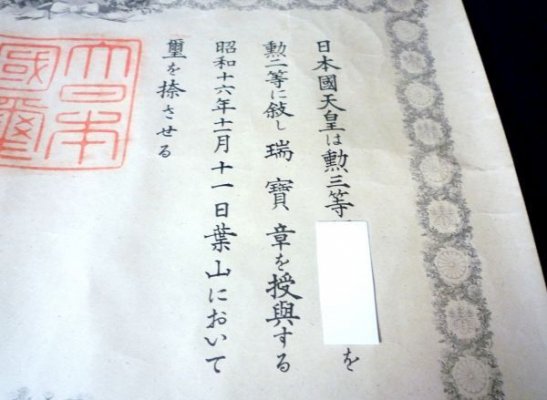 日本國天皇は勲三等
を
勲二等に敍し瑞寶章を授與する
昭和十六年 月十一日葉山において
璽を捺させる
大日本
國璽